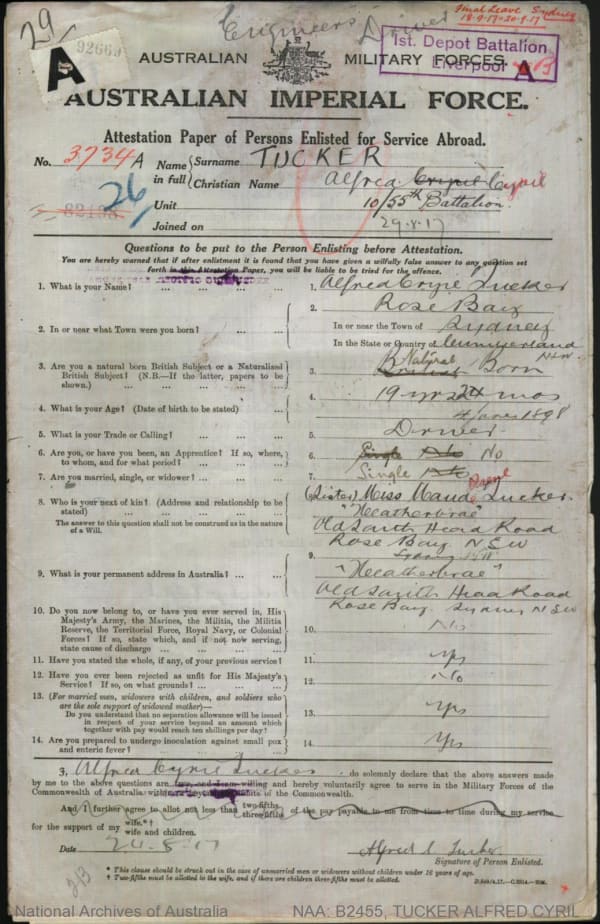 29/
Engineers Driver
Final Leave Sydney
18-9-17 - 20-9-17
A
92669
AUSTRALIAN MILITARY FORCES.
1st. Depot Battalion
Liverpool
A
AUSTRALIAN IMPERIAL FORCE.
Attestation Paper of Persons Enlisted for Service Abroad.
No. 3734 A Name in full Surname TUCKER
Christian Name Alfred Cyril Cyril
26 Unit 10/55th Battalion.
Joined on 29.8.17
Questions to be put to the Person Enlisting before Attestation.
You are hereby warned that if after enlistment it is found that you have given a wilfully false answer to any question set
forth in this Attestation Paper, you will be liable to be tried for the offence.
1. What is your Name? ... ... ... 1. Alfred Cyril Tucker
2. In or near what Town were you born? ... ... 2. Rose Bay
In or near the Town of Sydney
In the State or Country of Cumberland
NSW
3. Are you a natural born British Subject or a Naturalised
British Subject? (N.B.—If the latter, papers to be
shown.) ... ... ... 3. Natural Born
4. What is your Age? (Date of birth to be stated) ... 4. 19 yrs 2 mos
1898
5. What is your Trade or Calling? ... ... 5. Driver
6. Are you, or have you been, an Apprentice? If so, where,
to whom, and for what period? ... ... 6. Single No No
7. Are you married, single, or widower? ... ... 7. Single
8. Who is your next of kin? (Address and relationship to be
stated) ... ... ... 8. (Sister) Miss Maud Tucker.
The answer to this question shall not be construed as in the nature
of a Will.
"Heatherbrae"
Old South Head Road
Rose Bay NSW
9. What is your permanent address in Australia? ... ... 9. "Heatherbrae"
Old South Head Road
Rose Bay. Sydney NSW
10. Do you now belong to, or have you ever served in, His
Majesty's Army, the Marines, the Militia, the Militia
Reserve, the Territorial Force, Royal Navy, or Colonial
Forces? If so, state which, and if not now serving,
state cause of discharge ... ... ... 10. No
11. Have you stated the whole, if any, of your previous service? 11. Yes
12. Have you ever been rejected as unfit for His Majesty's
Service? If so, on what grounds? ... ... 12. No
13. (For married men, widowers with children, and soldiers who
are the sole support of widowed mother)—
Do you understand that no separation allowance will be issued
in respect of your service beyond an amount which
together with pay would reach ten shillings per day? 13. Yes
14. Are you prepared to undergo inoculation against small pox
and enteric fever? ... ... ... 14. Yes
I, Alfred Cyril Tucker do solemnly declare that the above answers made
by me to the above questions are true, and I am willing and hereby voluntarily agree to serve in the Military Forces of the
Commonwealth of Australia of the Commonwealth.
And I further agree to allot not less than two-fifths three-fifths of the pay payable to me from time to time during my service
for the support of my wife.*† wife and children.
Date 24-8-17
Alfred C Tucker
Signature of Person Enlisted.
* This clause should be struck out in the case of unmarried men or widowers without children under 16 years of age.
† Two-fifths must be allotted to the wife, and if there are children three-fifths must be allotted.
National Archives of Australia
NAA: B2455, TUCKER ALFRED CYRIL